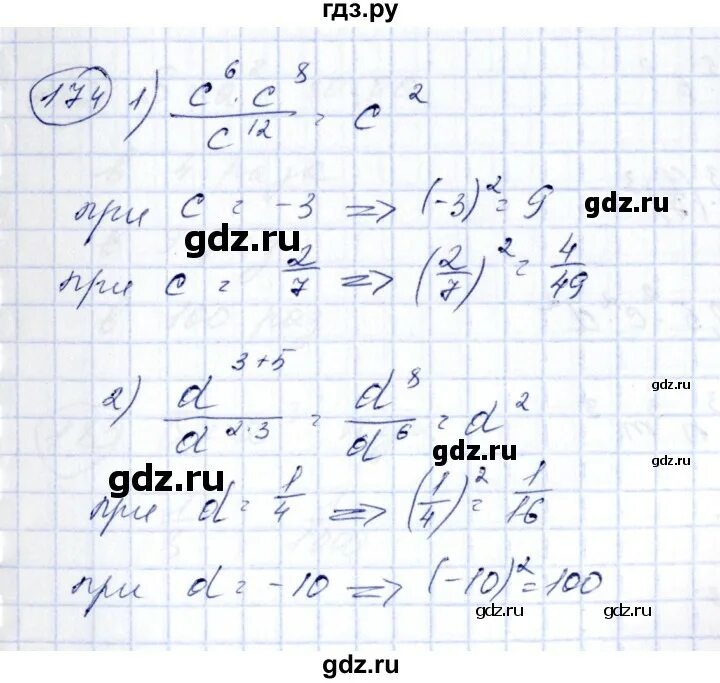 гдз.ру
174 1) c^6 · c^8 / c^12 = c^2
при c = -3 => (-3)^2 = 9 gdz.ru
gdz.ru
при c = 2/7 => (2/7)^2 = 4/49
2) d^(3+5) / d^(2·3) = d^8 / d^6 = d^2 gdz.ru
gdz.ru gdz.ru
gdz.ru
при d = 1/4 => (1/4)^2 = 1/16
при d = -10 => (-10)^2 = 100
gdz.ru gdz.ru
gdz.ru